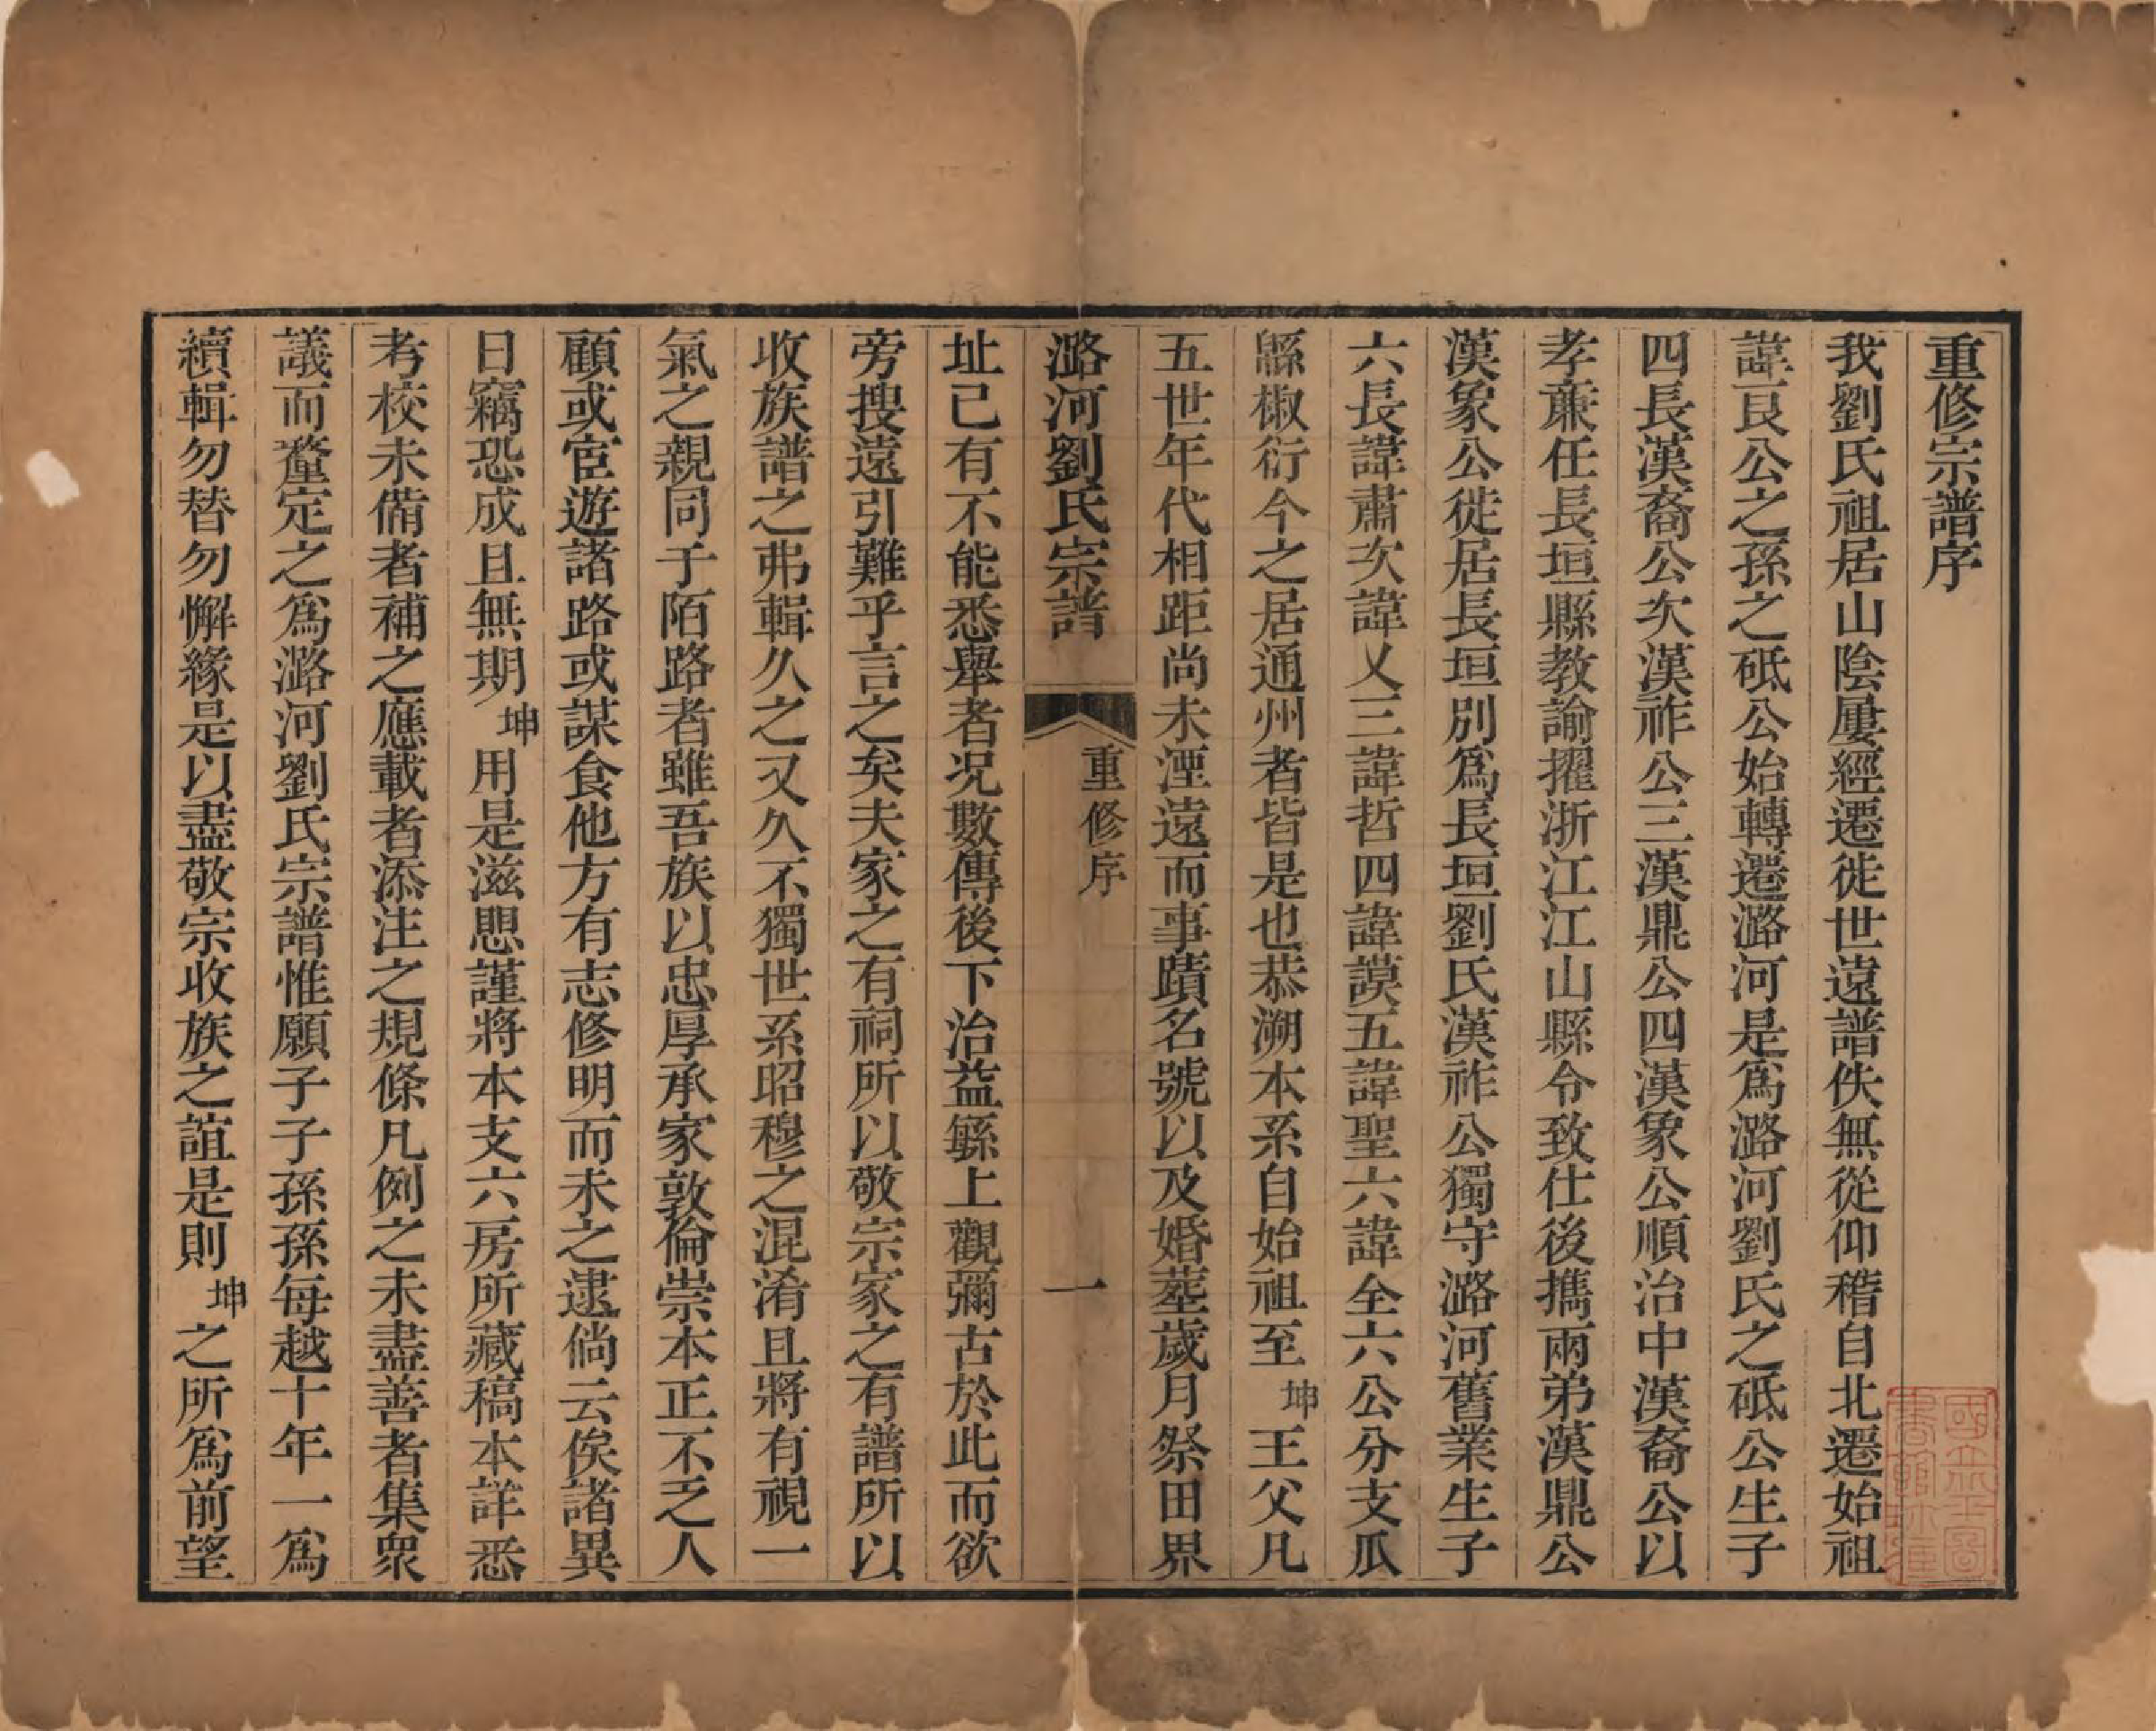 重修宗譜序
我劉氏祖居山陰屢經遷徙世遠譜佚無從仰稽自北遷始祖
諱艮公之孫之砥公始轉遷潞河是爲潞河劉氏之砥公生子
四長漢裔公次漢祚公三漢鼎公四漢象公順治中漢裔公以
孝亷任長垣縣教諭擢浙江江山縣令致仕後攜兩弟漢鼎公
漢象公徙居長垣別爲長垣劉氏漢祚公獨守潞河舊業生子
六長諱肅次諱乂三諱哲四諱謨五諱聖六諱全六公分支瓜
緜椒衍今之居通州者皆是也恭溯本系自始祖至坤王父凡
五世年代相距尚未湮遠而事蹟名號以及婚塟歲月祭田界
潞河劉氏宗譜 重修序 一
址已有不能悉舉者况數傳後下治益緐上觀彌古於此而欲
旁搜遠引難乎言之矣夫家之有祠所以敬宗家之有譜所以
收族譜之弗輯久之又久不獨世系昭穆之混淆且將有視一
氣之親同于陌路者雖吾族以忠厚承家敦倫崇本正不乏人
顧或宦遊諸路或謀食他方有志修明而未之逮倘云俟諸異
日竊恐成且無期坤用是滋懇謹將本支六房所藏稿本詳悉
考校未備者補之應載者添注之規條凡例之未盡善者集衆
議而釐定之爲潞河劉氏宗譜惟願子子孫孫每越十年一爲
續輯勿替勿懈緣是以盡敬宗收族之誼是則坤之所爲前望